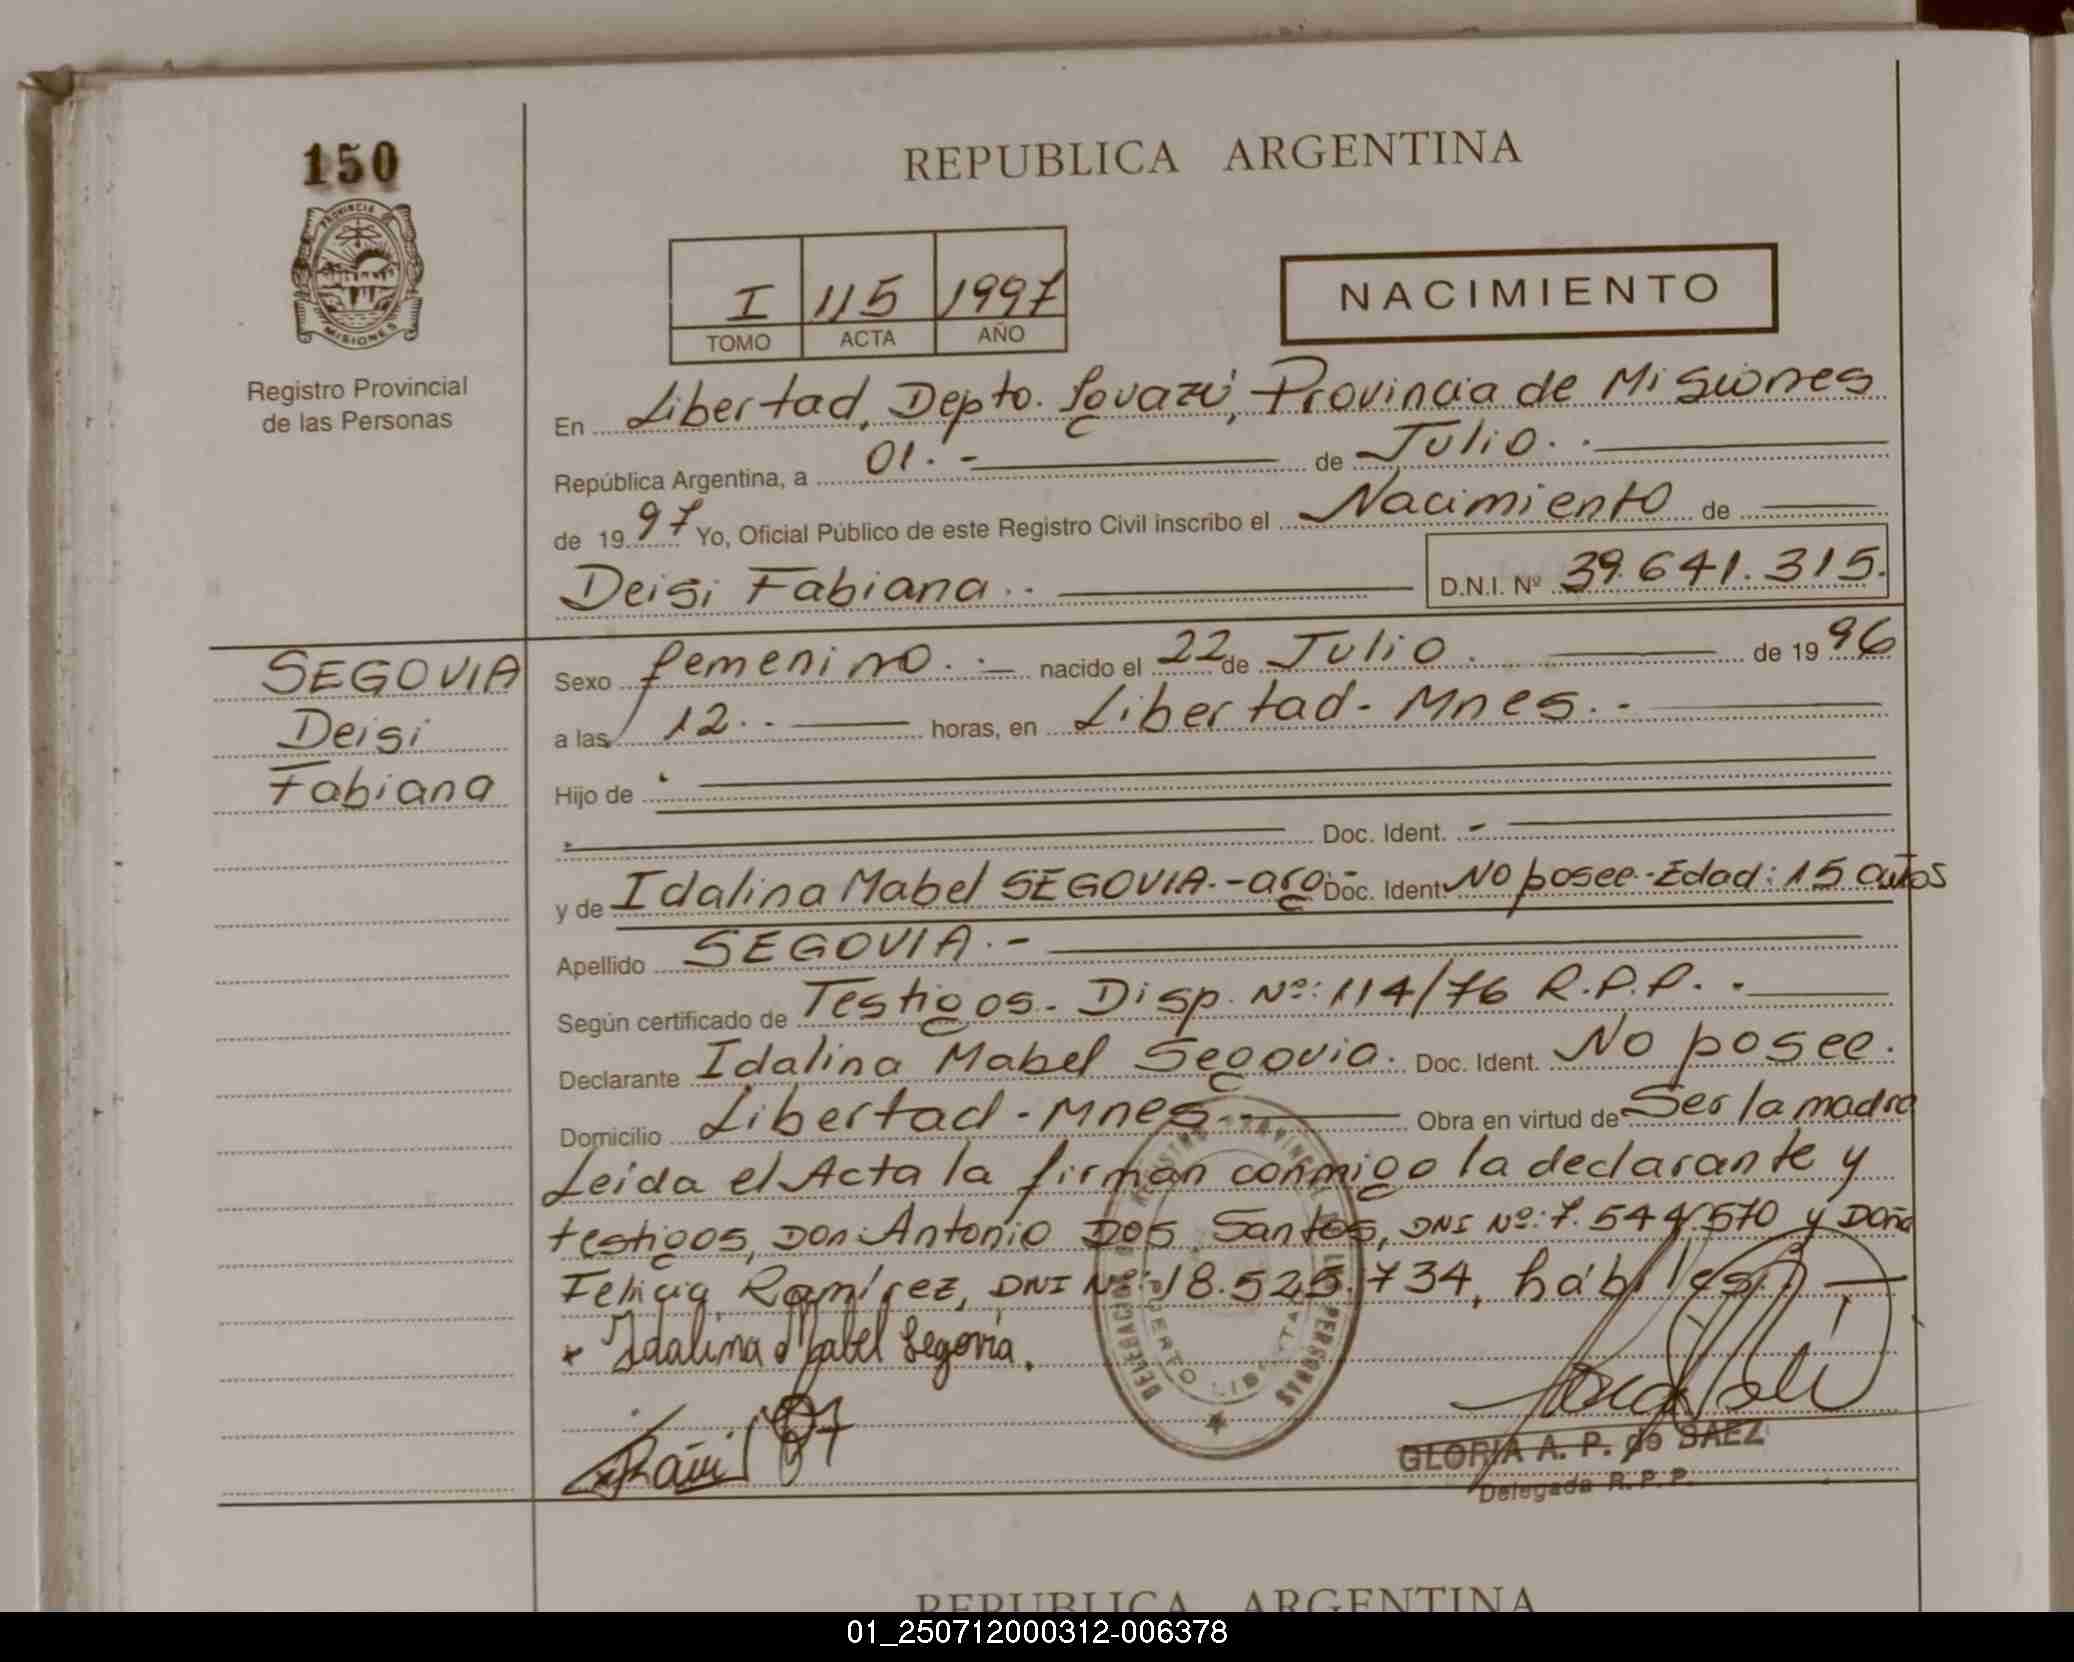 150
PROVINCIA
MISIONES
Registro Provincial
de las Personas
REPUBLICA ARGENTINA
I 115 1997
TOMO ACTA AÑO
NACIMIENTO
En Libertad, Depto. Iguazú, Provincia de Misiones
República Argentina, a 01.- de Julio.-
de 1997 Yo, Oficial Público de este Registro Civil inscribo el Nacimiento de
Deisi Fabiana.- D.N.I. Nº 39.641.315.
SEGOVIA
Deisi
Fabiana
Sexo femenino.- nacido el 22 de Julio. de 1996
a las 12.- horas, en Libertad-Mnes.-
Hijo de
Doc. Ident. -
y de Idalina Mabel SEGOVIA.-arg.- Doc. Ident. No posee.-Edad: 15 años
Apellido SEGOVIA.-
Según certificado de Testigos- Disp. Nº: 114/76 R.P.P.-
Declarante Idalina Mabel Segovia. Doc. Ident. No posee.
Domicilio Libertad-Mnes.- Obra en virtud de Ser la madre
Leída el Acta la firman conmigo la declarante y
testigos, Don: Antonio Dos Santos, DNI Nº: 7.544.570 y Doña
Felicia Ramírez, DNI Nº: 18.525.734, hábiles.
Idalina Mabel Segovia.
DELEGACION
PUERTO LIBERTAD
GLORIA A. P. de SAEZ
Delegada R. P. P.
REPUBLICA ARGENTINA
01_250712000312-006378